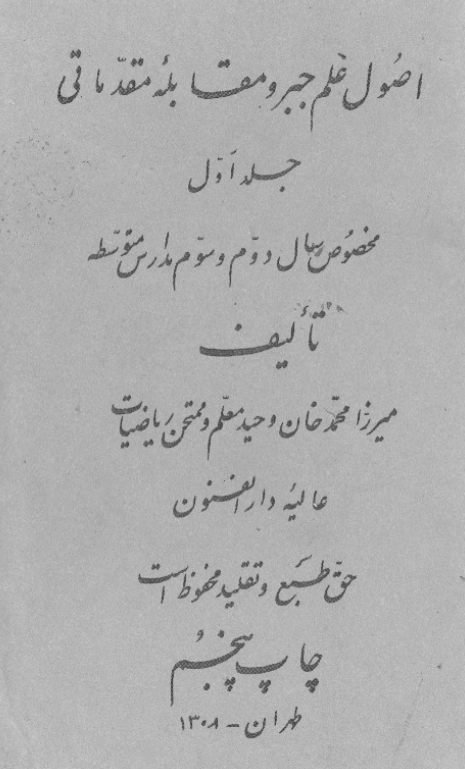 اصُول علم جبر و مقابلهٔ مقدّماتی
جلد اوّل
مخصُوص سال دوّم و سوّم مدارس متوسّطه
تألیف
میرزا محمّد خان وحید معلّم و ممتحن ریاضیات
عالیهٔ دارالفنون
حقّ طبع و تقلید محفوظ است
چاپ پنجُم
طهران – ۱۳۰۸